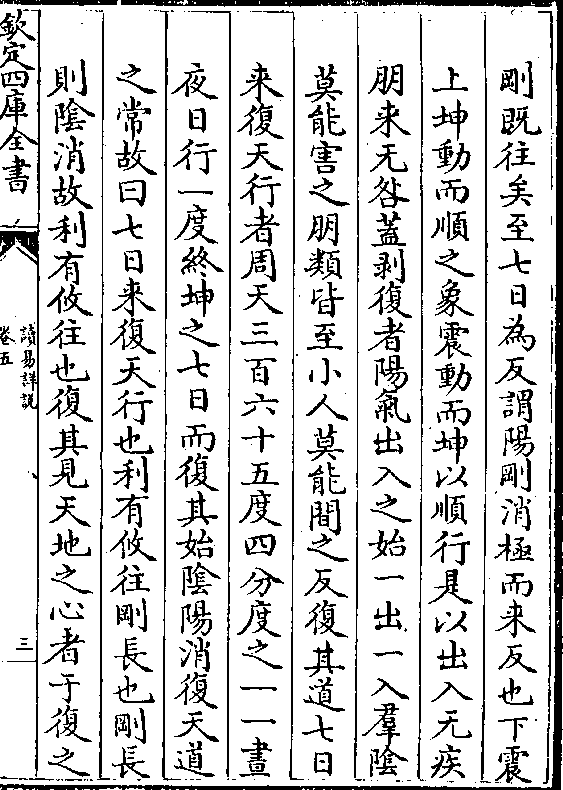 剛既往矣至七日為反謂陽剛消極而来反也下震
上坤動而順之象震動而坤以順行是以出入无疾
朋来无咎蓋剥復者陽氣出入之始一出一入羣陰
莫能害之朋類皆至小人莫能間之反復其道七日
来復天行者周天三百六十五度四分度之一一晝
夜日行一度終坤之七日而復其始陰陽消復天道
之常故曰七日来復天行也利有攸往剛長也剛長
則陰消故利有攸往也復其見天地之心者于復之
欽定四庫全書
讀易詳說
卷五
三